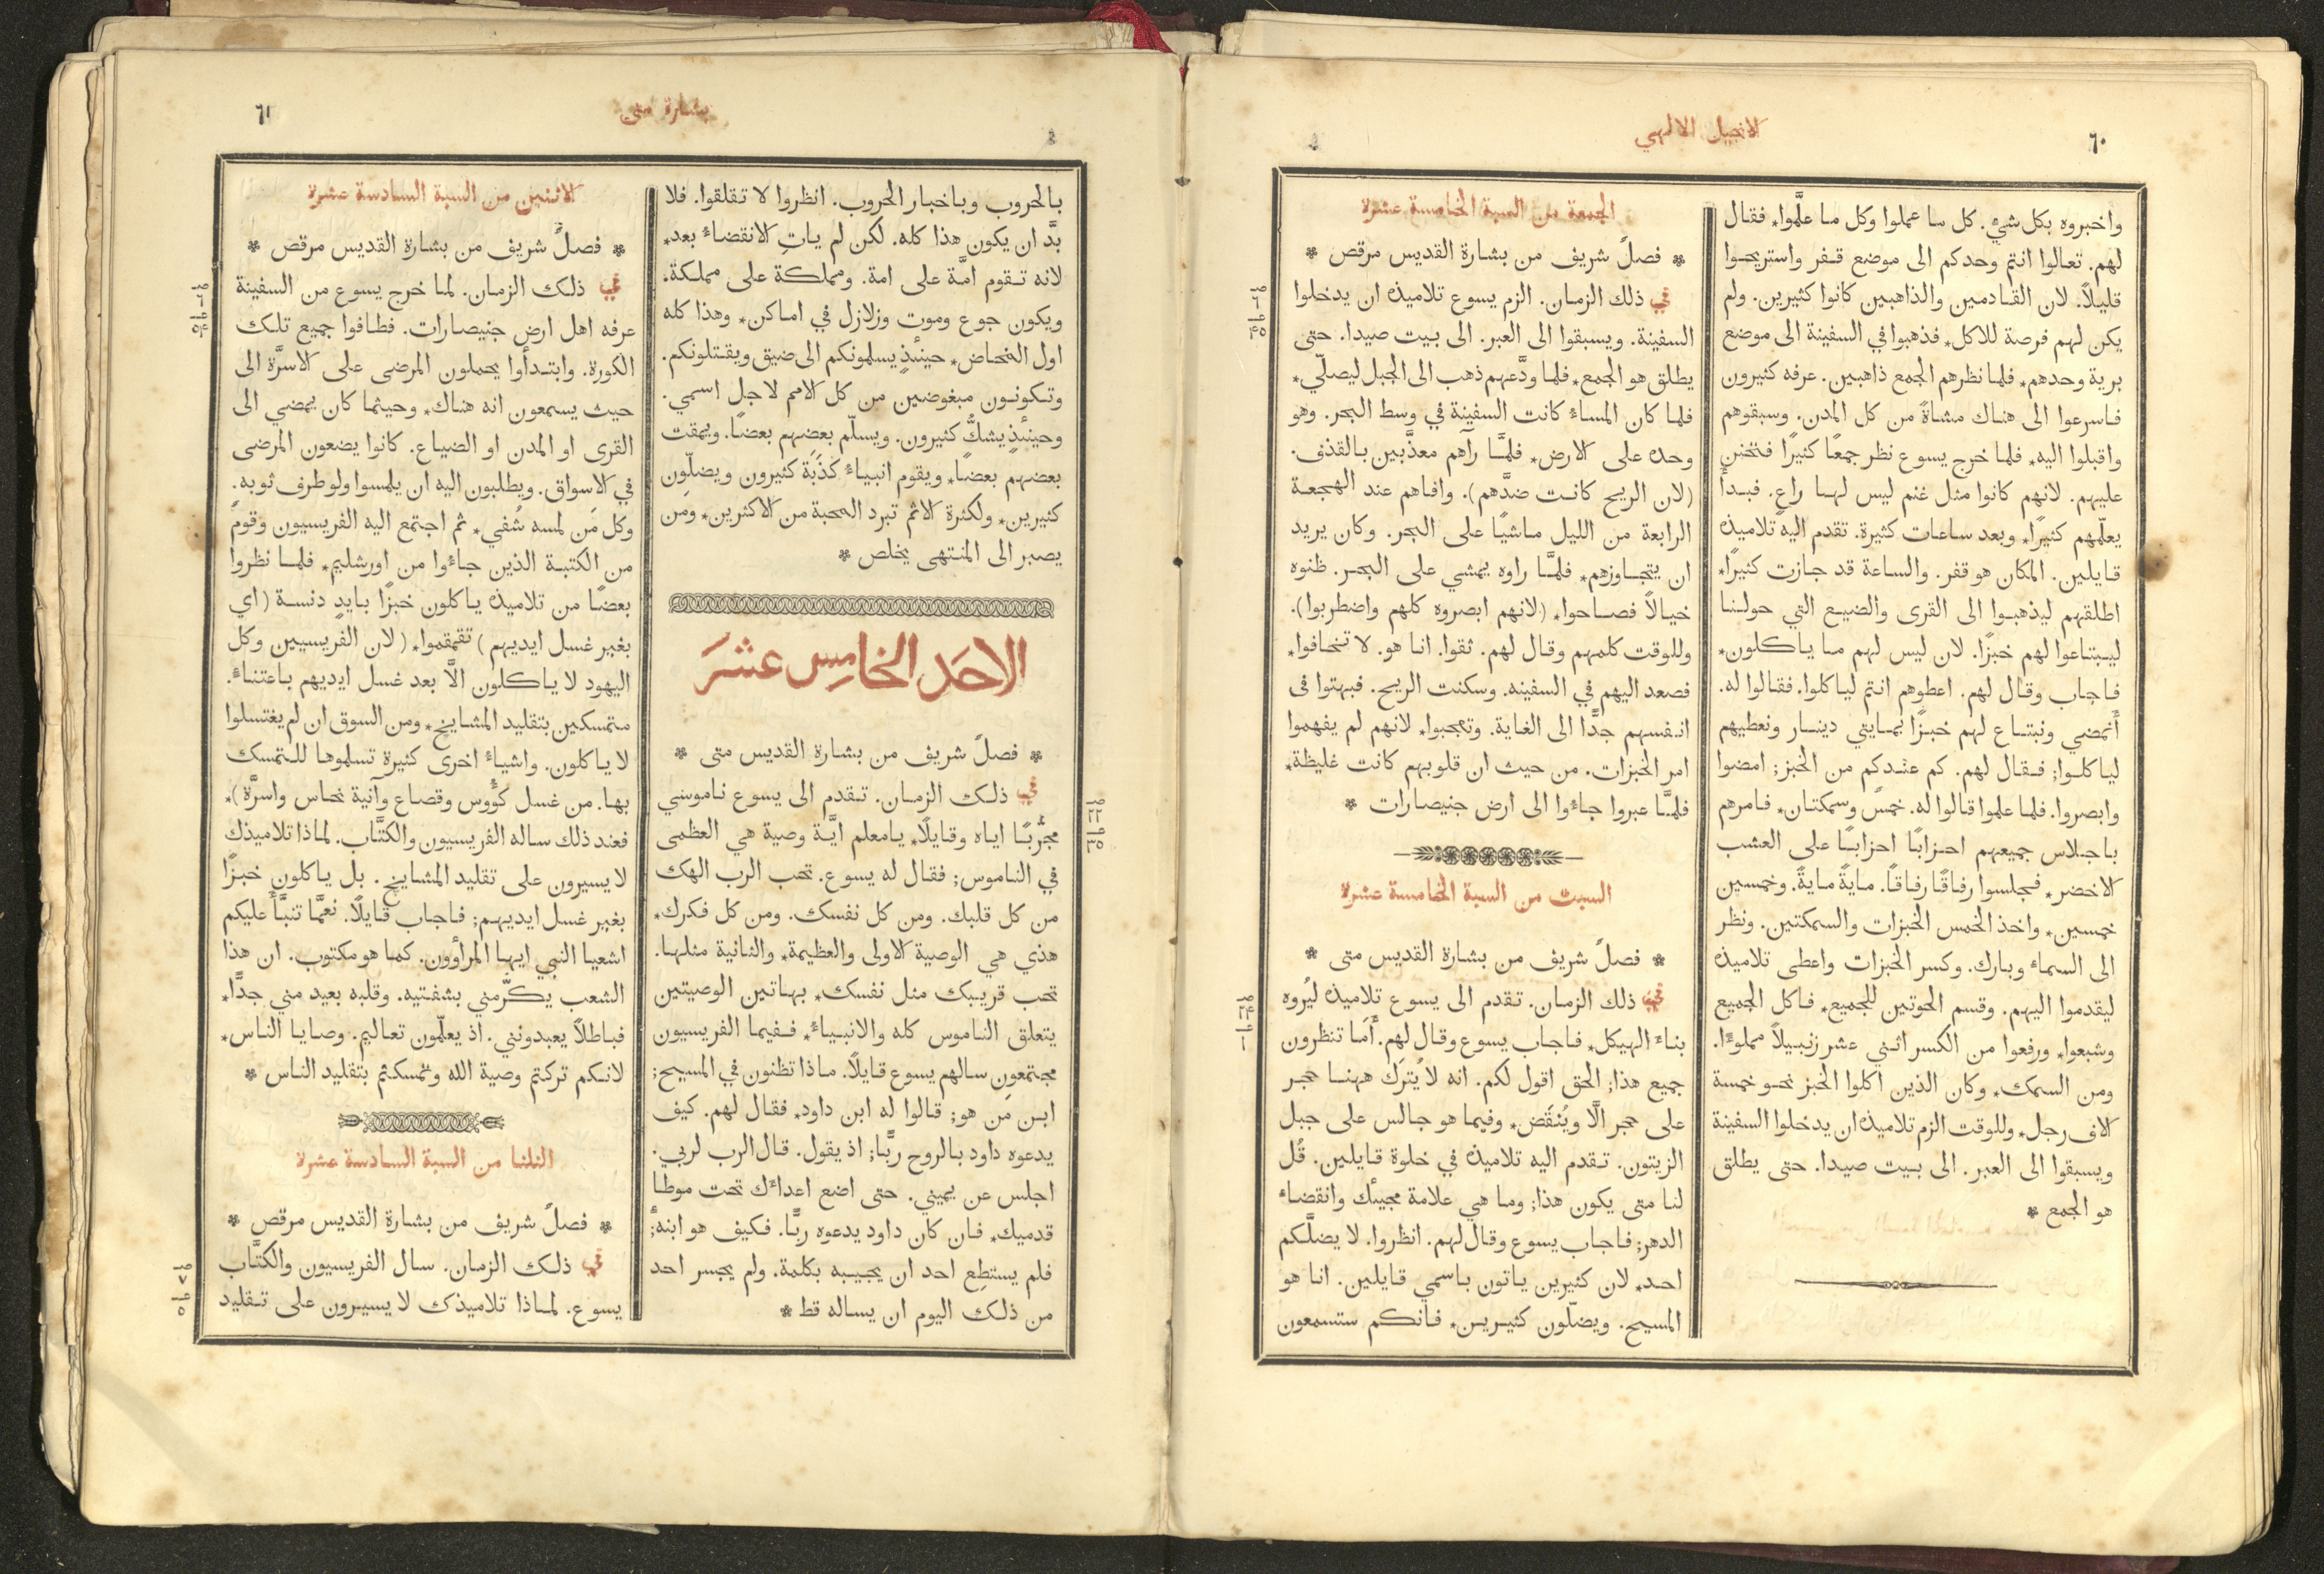 ٦٠
الانجيل الالهي
واخبروه بكل شيء. كل ما عملوا وكل ما علَّموا٭ فقال
لهم. تعالوا انتم وحدكم الى موضع قفر واستريحوا
قليلاً. لان القادمين والذاهبين كانوا كثيرين. ولم
يكن لهم فرصة للاكل٭ فذهبوا في السفينة الى موضع
برية وحدهم٭ فلما نظرهم الجمع ذاهبين. عرفه كثيرون
فاسرعوا الى هناك مشاةً من كل المدن. وسبقوهم
واقبلوا اليه٭ فلما خرج يسوع نظر جمعًا كثيرًا فتحنن
عليهم. لانهم كانوا مثل غنم ليس لها راعٍ. فبدأ
يعلّمهم كثيرًا٭ وبعد ساعات كثيرة. تقدم اليه تلاميذه
قايلين. المكان هو قفر. والساعة قد جازت كثيرًا٭
اطلقهم ليذهبوا الى القرى والضيع التي حولنا
ليبتاعوا لهم خبزًا. لان ليس لهم ما ياكلون٭
فاجاب وقال لهم. اعطوهم انتم لياكلوا. فقالوا له.
أنمضي ونبتاع لهم خبزًا بمايتي دينار ونعطيهم
لياكلوا; فقال لهم. كم عندكم من الخبز; امضوا
وابصروا. فلما علموا قالوا له. خمسٌ وسمكتان٭ فامرهم
باجلاس جميعهم احزابًا احزابًا على العشب
الاخضر٭ فجلسوا رفاقًا رفاقًا. مايةً مايةً. وخمسين
خمسين٭ واخذ الخمس الخبزات والسمكتين. ونظر
الى السماء وبارك. وكسر الخبزات واعطى تلاميذه
ليقدموا اليهم. وقسم الحوتين للجميع٭ فاكل الجميع
وشبعوا٭ ورفعوا من الكسر اثني عشر زنبيلاً مملوءًا.
ومن السمك٭ وكان الذين اكلوا الخبز نحو خمسة
الاف رجل٭ وللوقت الزم تلاميذه ان يدخلوا السفينة
ويسبقوا الى العبر. الى بيت صيدا. حتى يطلق
هو الجمع ٭
الجمعة من السبة الخامسة عشرة
٭ فصلٌ شريف من بشارة القديس مرقص ٭
في ذلك الزمان. الزم يسوع تلاميذه ان يدخلوا
السفينة. ويسبقوا الى العبر. الى بيت صيدا. حتى
يطلق هو الجمع٭ فلما ودَّعهم ذهب الى الجبل ليصلّي٭
فلما كان المساء كانت السفينة في وسط البحر. وهو
وحده على الارض٭ فلمَّا رآهم معذَّبين بالقذف.
(لان الريح كانت ضدَّهم). وافاهم عند الهجعة
الرابعة من الليل ماشيًا على البحر. وكان يريد
ان يتجاوزهم٭ فلمَّا راوه يمشي على البحر. ظنوه
خيالاً فصاحوا٭ (لانهم ابصروه كلهم واضطربوا).
وللوقت كلمهم وقال لهم. ثقوا. انا هو. لا تخافوا٭
فصعد اليهم في السفينه. وسكنت الريح. فبهتوا في
انفسهم جدًّا الى الغاية. وتعجبوا٭ لانهم لم يفهموا
امر الخبزات. من حيث ان قلوبهم كانت غليظة٭
فلمَّا عبروا جاءوا الى ارض جنيصارات ٭
السبت من السبة الخامسة عشرة
٭ فصلٌ شريف من بشارة القديس متى ٭
في ذلك الزمان. تقدم الى يسوع تلاميذه ليُروه
بناء الهيكل٭ فاجاب يسوع وقال لهم. أَمَا تنظرون
جميع هذا; الحق اقول لكم. انه لا يُترَك ههنا حجر
على حجر الَّا ويُنقَض٭ وفيما هو جالس على جبل
الزيتون. تقدم اليه تلاميذه في خلوة قايلين. قُل
لنا متى يكون هذا; وما هي علامة مجيئك وانقضاء
الدهر; فاجاب يسوع وقال لهم. انظروا. لا يضلَّكم
احد٭ لان كثيرين ياتون باسمي قايلين. انا هو
المسيح. ويضلّون كثيرين٭ فانكم ستسمعون
بشارة متى
٦١
بالحروب وباخبار الحروب. انظروا لا تقلقوا. فلا
بدَّ ان يكون هذا كله. لكن لم ياتِ الانقضاء بعد٭
لانه تقوم امَّة على امة. ومملكة على مملكة.
ويكون جوع وموت وزلازل في اماكن٭ وهذا كله
اول المخاض٭ حينئذٍ يسلمونكم الى ضيق ويقتلونكم.
وتكونون مبغوضين من كل الامم لاجل اسمي.
وحينئذٍ يشكُّ كثيرون. ويسلّم بعضهم بعضًا. ويمقت
بعضهم بعضًا٭ ويقوم انبياء كَذَبَة كثيرون ويضلّون
كثيرين٭ ولكثرة الاثم تبرد المحبة من الاكثرين٭ ومَن
يصبر الى المنتهى يخلص ٭
الاحَد الخامِس عشَرَ
٭ فصلٌ شريف من بشارة القديس متى ٭
في ذلك الزمان. تقدم الى يسوع ناموسي
مجرّبًا اياه وقايلاً٭ يامعلم ايَّة وصية هي العظمى
في الناموس; فقال له يسوع. تحب الرب الهك
من كل قلبك. ومن كل نفسك. ومن كل فكرك٭
هذي هي الوصية الاولى والعظيمة٭ والثانية مثلها.
تحب قريبك مثل نفسك٭ بهاتين الوصيتين
يتعلق الناموس كله والانبياء٭ ففيما الفريسيون
مجتمعون سالهم يسوع قايلاً. ماذا تظنون في المسيح;
ابن مَن هو; قالوا له ابن داود٭ فقال لهم. كيف
يدعوه داود بالروح ربًّا; اذ يقول. قال الرب لربي.
اجلس عن يميني. حتى اضع اعداءَك تحت موطا
قدميك٭ فان كان داود يدعوه ربًّا. فكيف هو ابنه;
فلم يستطِع احد ان يجيبه بكلمة. ولم يجسر احد
من ذلك اليوم ان يساله قط ٭
الاثنين من السبة السادسة عشرة
٭ فصلٌ شريف من بشارة القديس مرقص ٭
في ذلك الزمان. لما خرج يسوع من السفينة
عرفه اهل ارض جنيصارات. فطافوا جميع تلك
الكورة. وابتدأوا يحملون المرضى على الاسرَّة الى
حيث يسمعون انه هناك٭ وحيثما كان يمضي الى
القرى او المدن او الضياع. كانوا يضعون المرضى
في الاسواق. ويطلبون اليه ان يلمسوا ولو طرف ثوبه.
وكل مَن لمسه شُفي٭ ثم اجتمع اليه الفريسيون وقومٌ
من الكتبة الذين جاءوا من اورشليم٭ فلما نظروا
بعضًا من تلاميذه ياكلون خبزًا بايدٍ دنسة (اي
بغير غسل ايديهم) تقمقموا٭ (لان الفريسيين وكل
اليهود لا ياكلون الَّا بعد غسل ايديهم باعتناء.
متمسكين بتقليد المشايخ٭ ومن السوق ان لم يغتسلوا
لا ياكلون. واشياء اخرى كثيرة تسلموها للتمسك
بها. من غسل كؤوس وقصاع وآنية نحاس واسرَّة)٭
فعند ذلك ساله الفريسيون والكتَّاب. لماذا تلاميذك
لا يسيرون على تقليد المشايخ. بل ياكلون خبزًا
بغير غسل ايديهم; فاجاب قايلاً. نعمَّا تنبَّأ عليكم
اشعيا النبي ايها المرأوون. كما هو مكتوب. ان هذا
الشعب يكرّمني بشفتيه. وقلبه بعيد مني جدًّا٭
فباطلاً يعبدونني. اذ يعلّمون تعاليم. وصايا الناس٭
لانكم تركتم وصية الله وتمسكتم بتقليد الناس ٭
الثلثا من السبة السادسة عشرة
٭ فصلٌ شريف من بشارة القديس مرقص ٭
في ذلك الزمان. سال الفريسيون والكتَّاب
يسوع. لماذا تلاميذك لا يسيرون على تقليد